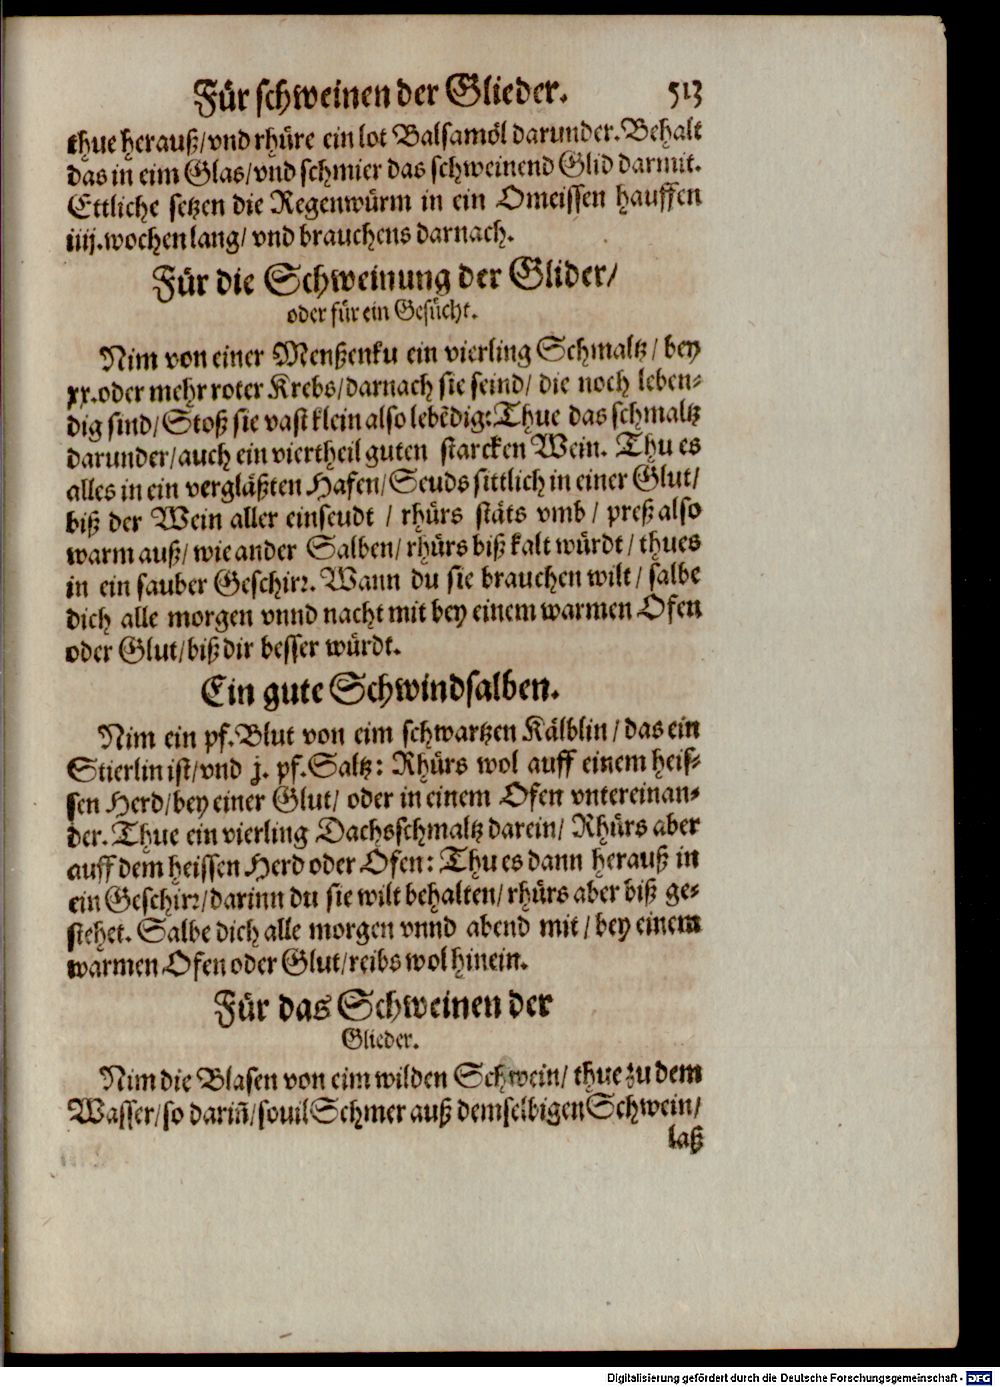 Für schweinen der Glieder. 513
thue herauß/vnd rhüre ein lot Balsamöl darunder. Behalt
das in eim Glas/vnd schmier das schweinend Glid darmit.
Ettliche setzen die Regenwürm in ein Omeissen hauffen
iiij. wochen lang/ vnd brauchens darnach.
Für die Schweinung der Glider/
oder für ein Gesücht.
Nim von einer Menßenku ein vierling Schmaltz/ bey
xx. oder mehr roter Krebs/darnach sie seind/ die noch leben-
dig sind/ Stoß sie vast klein also lebẽdig: Thue das schmaltz
darunder/auch ein viertheil guten starcken Wein. Thu es
alles in ein vergläßten Hafen/Seuds sittlich in einer Glut/
biß der Wein aller einseudt / rhürs stäts vmb/ preß also
warm auß/ wie ander Salben/ rhürs biß kalt würdt/ thues
in ein sauber Geschirr. Wann du sie brauchen wilt/ salbe
dich alle morgen vnnd nacht mit bey einem warmen Ofen
oder Glut/biß dir besser würdt.
Ein gute Schwindsalben.
Nim ein pf. Blut von eim schwartzen Kälblin/das ein
Stierlin ist/vnd j. pf. Saltz: Rhürs wol auff einem heis-
sen Herd/bey einer Glut/ oder in einem Ofen vntereinan-
der. Thue ein vierling Dachsschmaltz darein/ Rhürs aber
auff dem heissen Herd oder Ofen: Thu es dann herauß in
ein Geschirr/darinn du sie wilt behalten/rhürs aber biß ge-
stehet. Salbe dich alle morgen vnnd abend mit/ bey einem
warmen Ofen oder Glut/reibs wol hinein.
Für das Schweinen der
Glieder.
Nim die Blasen von eim wilden Schwein/ thue zu dem
Wasser/so dariñ/souil Schmer auß demselbigen Schwein/
laß
Digitalisierung gefördert durch die Deutsche Forschungsgemeinschaft - DFG